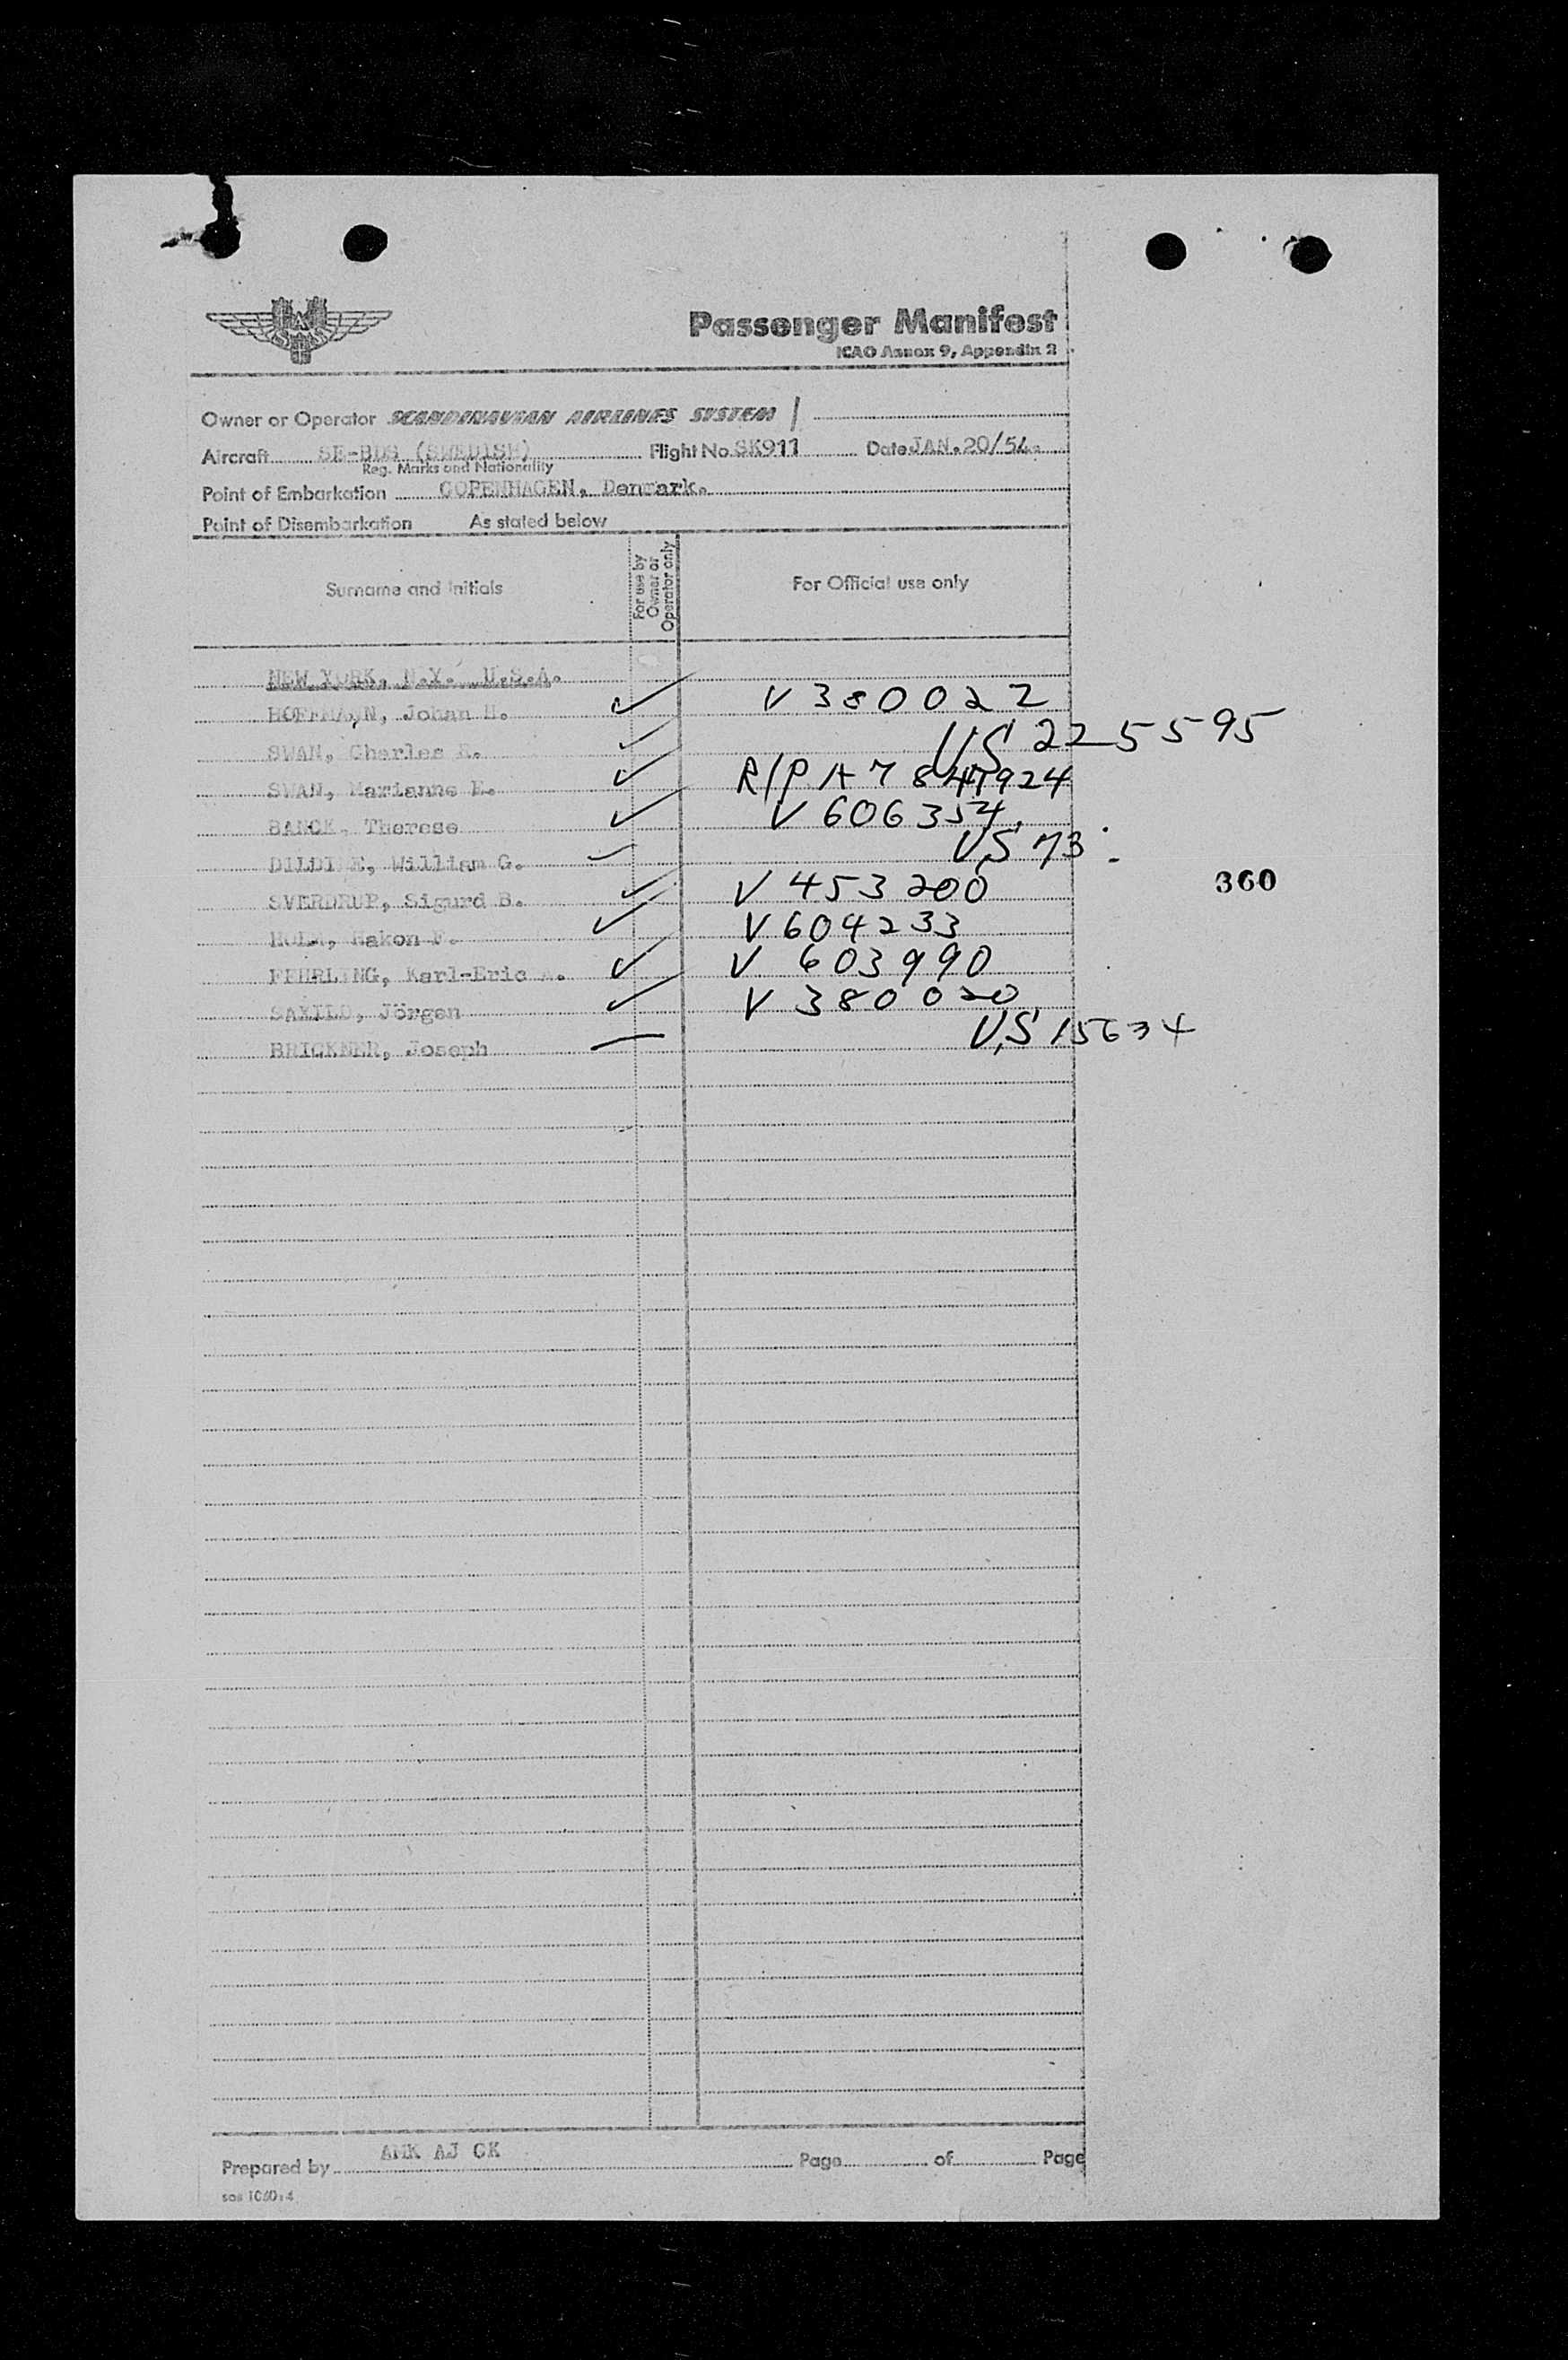 Passenger Manifest
ICAO Annex 9, Appendix 2
Owner or Operator SCANDINAVIAN AIRLINES SYSTEM
Aircraft SE-BDS (SWEDISH) Flight No. SK911 Date JAN.20/54.
Reg. Marks and Nationality
Point of Embarkation COPENHAGEN, Denmark.
Point of Disembarkation As stated below
Surname and Initials For use by Owner or Operator only For Official use only
NEW YORK, N.Y. U.S.A.
HOFFMANN, Johan H. ✓ V 380022
SWAN, Charles ✓ US 225595
SWAN, Marianne E. ✓ R/P A7841924
Therese ✓ V 606354
DILDINE, William G. ✓ US 73
SVERDRUP, Sigurd B. ✓ V 453200
HOLM, Hakon F. ✓ V 604233
FEHRLING, Karl-Eric A. ✓ V 603990
SAXILD, Jörgen ✓ V 380020
BRICKNER, Joseph — US 15634
360
Prepared by AMK AJ CK Page of Page